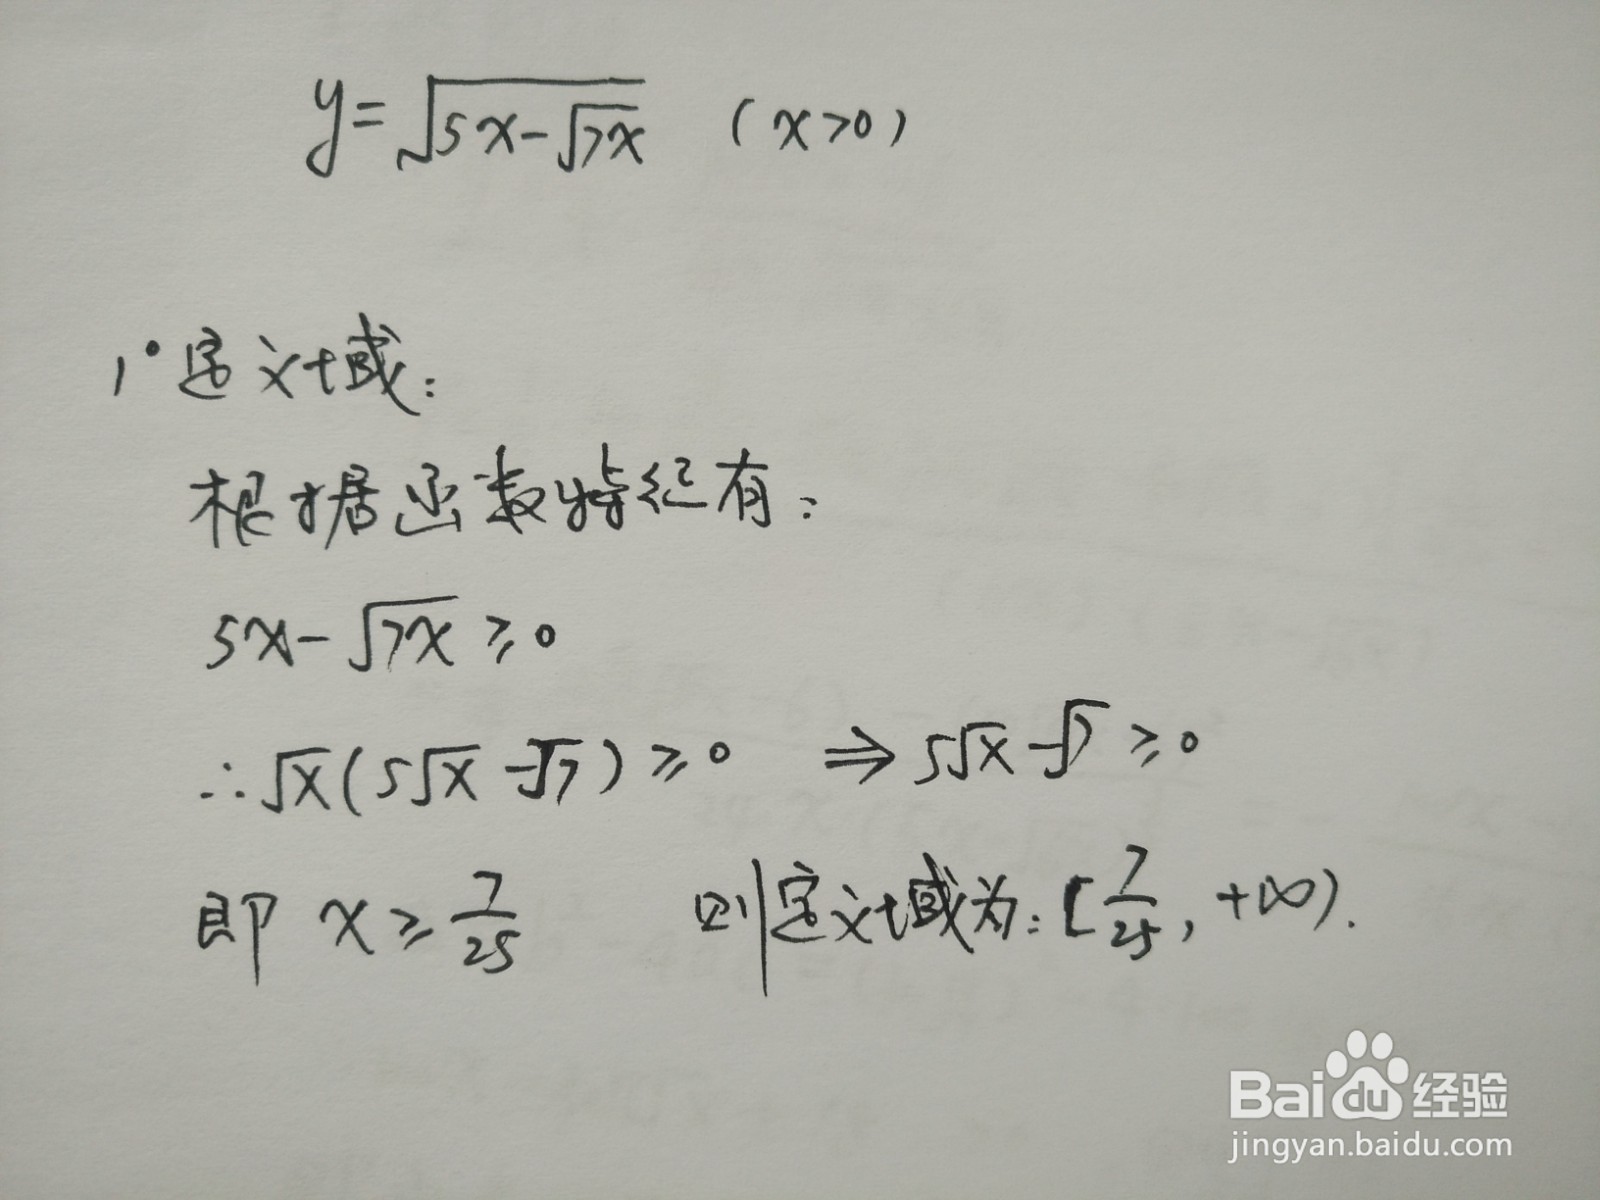 y=√(5x-√(7x)) (x>0)
1°定义域:
根据函数特征有:
5x-√(7x)≥0
∴√x(5√x-√7)≥0 ⇒5√x-√7≥0
即 x≥7/25 则定义域为:[7/25,+∞).
Baidu经验
jingyan.baidu.com